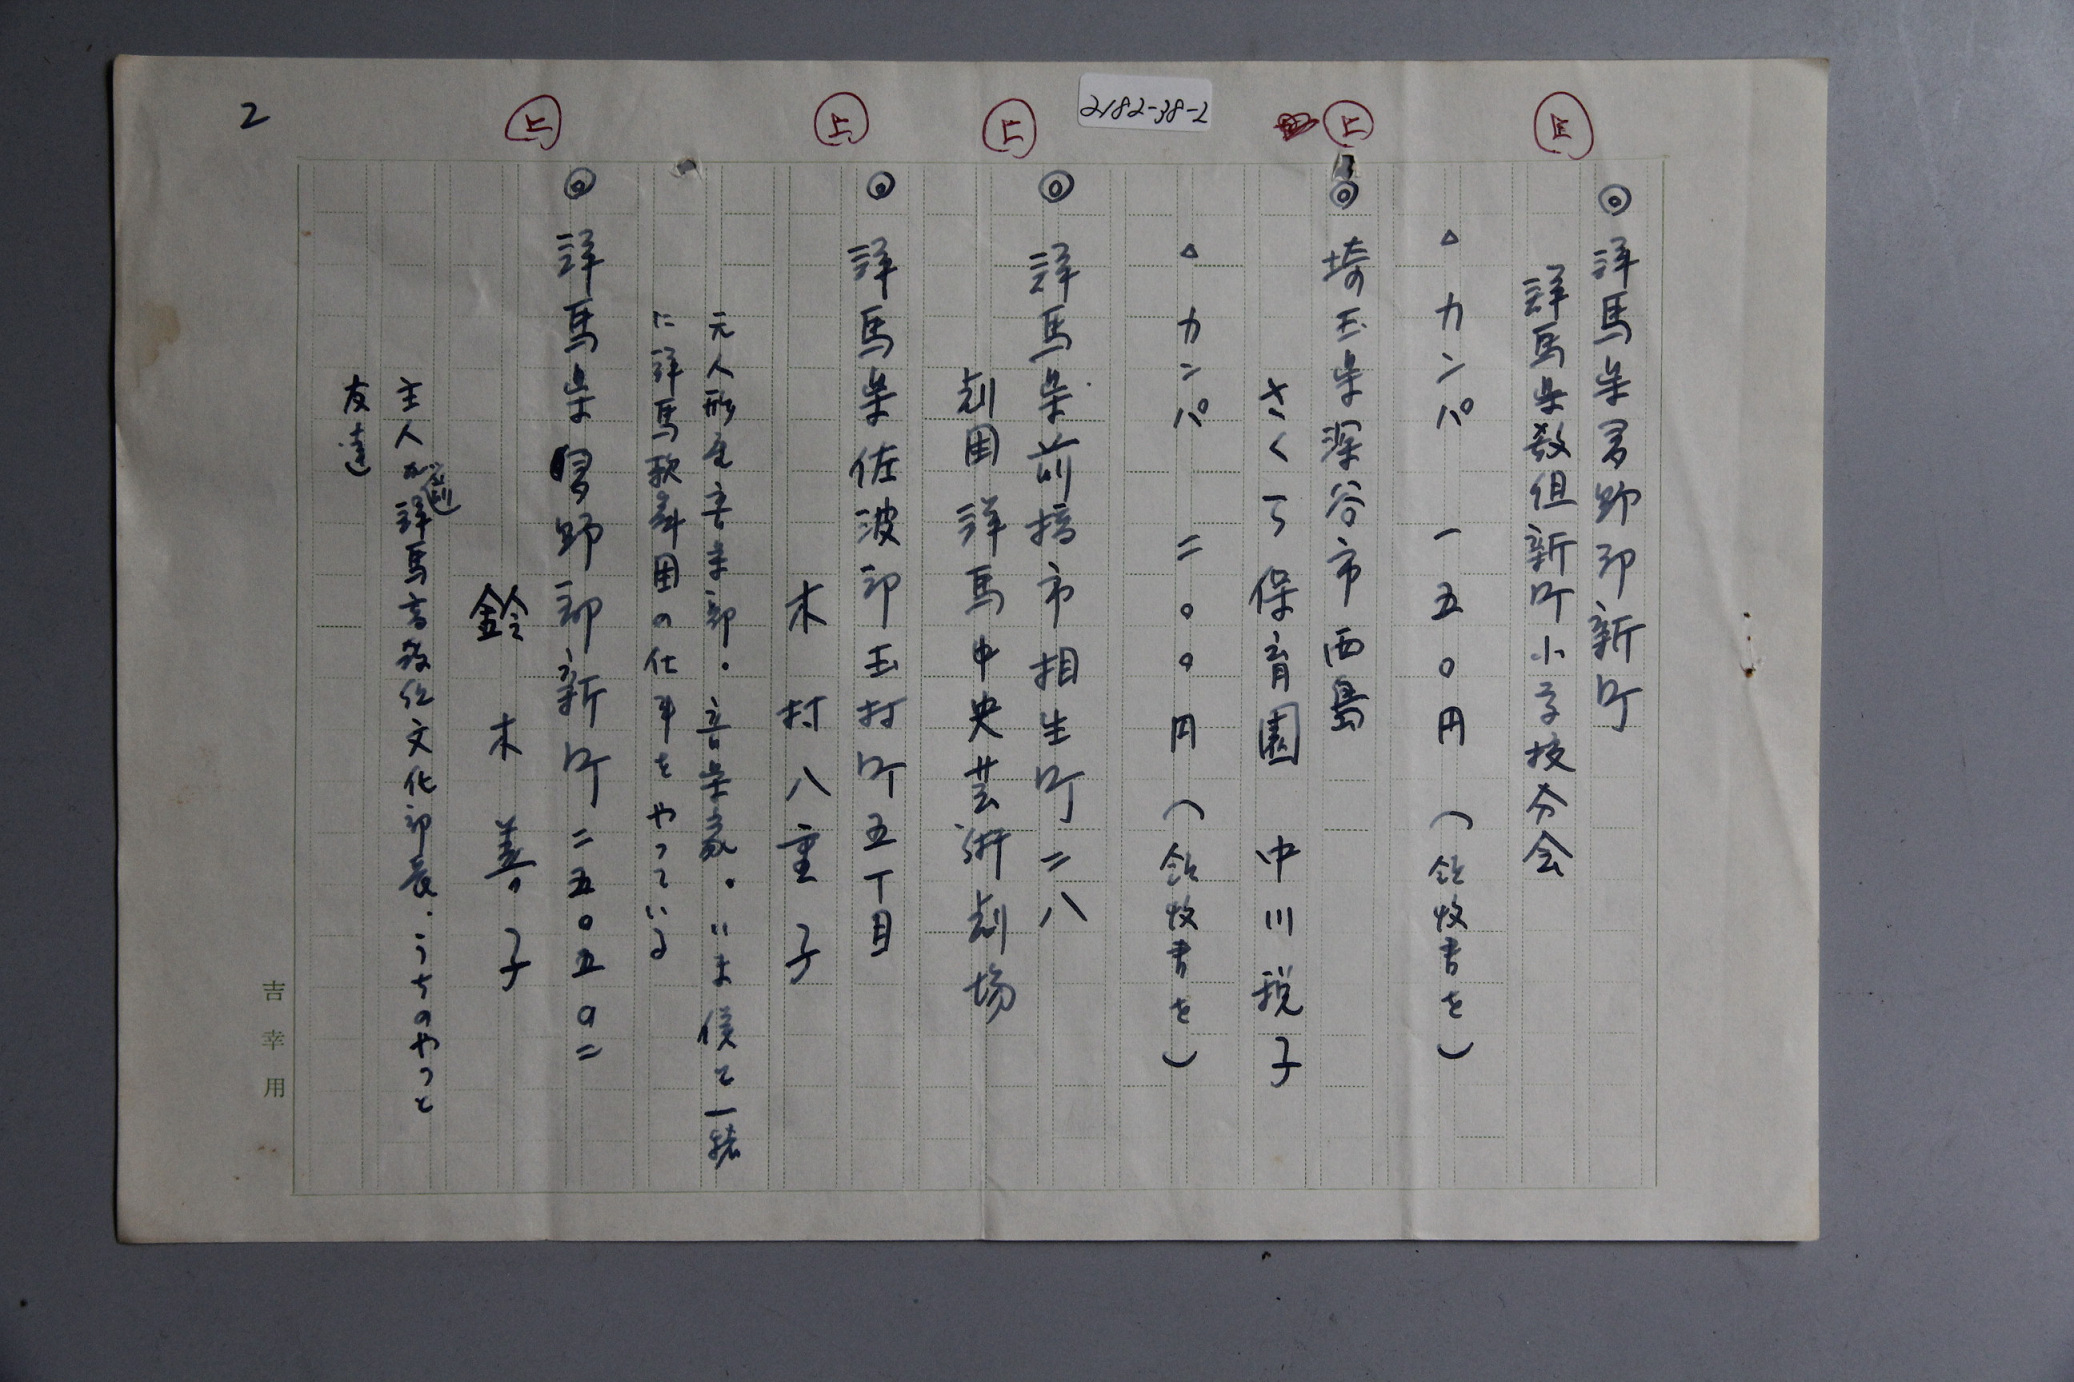 2182-38-2
2
上
上
上
上
上
◎ 群馬県多野郡新町
群馬県教組新町小学校分会
△ カンパ 一五〇円(領收書を)
◎ 埼玉県深谷市西島
さくら保育園 中川税子
△ カンパ 二〇〇円(領收書を)
◎ 群馬県前橋市相生町二八
劇団群馬中央芸術劇場
◎ 群馬県佐波郡玉村町五丁目
木村八重子
元人形座音楽部・音楽家。いま僕と一緒
に群馬歌舞団の仕事をやっている
◎ 群馬県多野郡新町二五〇五の二
鈴木善子
主人が(前)群馬高教組文化部長・うちのやつと
友達
吉幸用